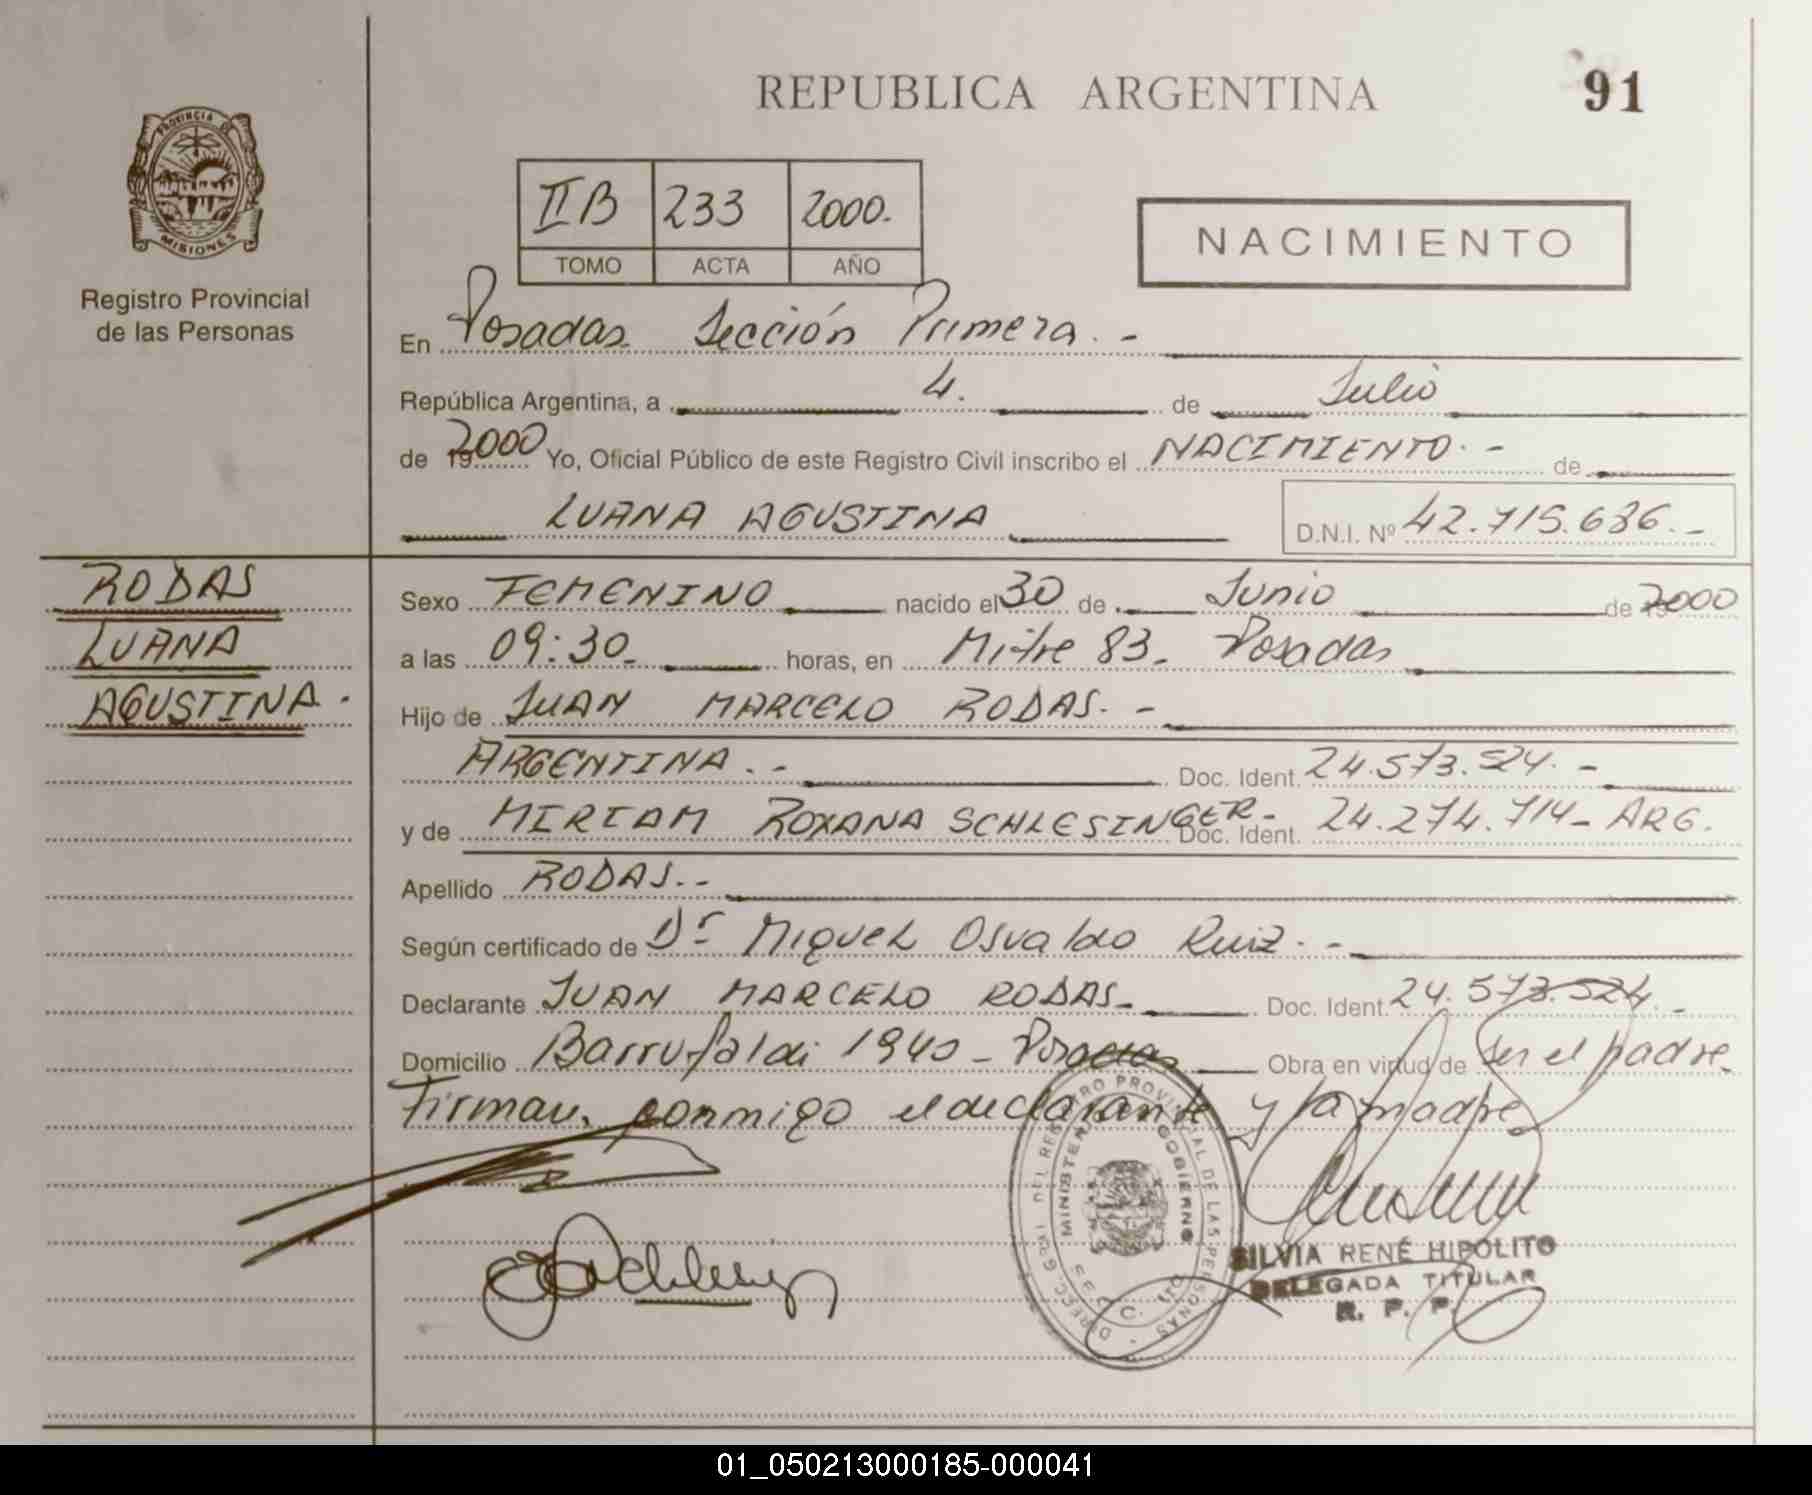 REPUBLICA ARGENTINA 91
PROVINCIA DE
MISIONES
Registro Provincial
de las Personas
II B 233 2000.
TOMO ACTA AÑO
NACIMIENTO
En Posadas Sección Primera. -
República Argentina, a 4. de Julio
de 2000 Yo, Oficial Público de este Registro Civil inscribo el NACIMIENTO. - de
LUANA AGUSTINA D.N.I. Nº 42.715.636. -
RODAS
LUANA
AGUSTINA.
Sexo FEMENINO nacido el 30 de Junio de 2000
a las 09:30. horas, en Mitre 83. Posadas
Hijo de JUAN MARCELO RODAS. -
ARGENTINA. - Doc. Ident. 24.573.524. -
y de MIRIAM ROXANA SCHLESINGER- Doc. Ident. 24.274.714- ARG.
Apellido RODAS. -
Según certificado de Dr Miguel Osvaldo Ruiz. -
Declarante JUAN MARCELO RODAS- Doc. Ident. 24.573.524. -
Domicilio Barrufaldi 1940 - Posadas Obra en virtud de ser el padre.
Firman, conmigo el declarante y la madre
DIRECC. GRAL. DEL REGISTRO PROVINCIAL DE LAS PERSONAS
MINISTERIO GOBIERNO
SECC.
SILVIA RENÉ HIPOLITO
DELEGADA TITULAR
R. P. P.
01_050213000185-000041